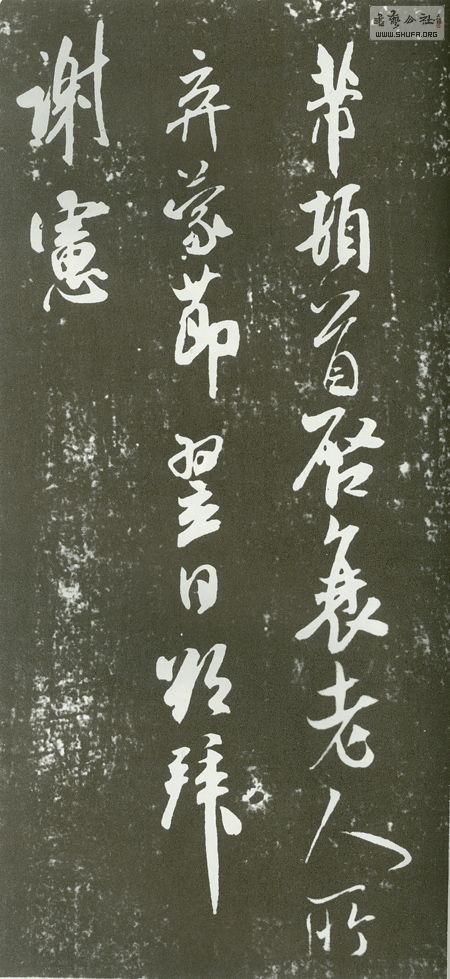 書藝公社
WWW.SHUFA.ORG
芾頓首啓衰老人所
弃蒙節翌日拜
謝憲